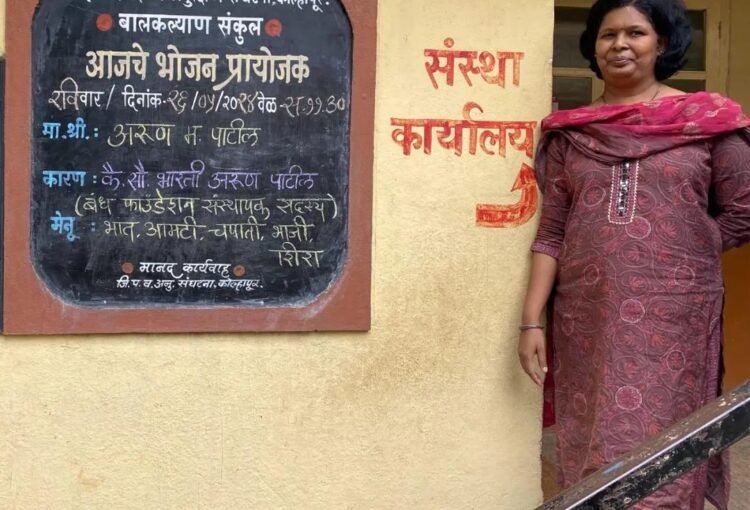 बालकल्याण संकुल
आजचे भोजन प्रायोजक
रविवार / दिनांक-२६/०५/२०२४ वेळ-स.११.३०
मा.श्री.: अरुण म. पाटील
कारण : कै. सौ. भारती अरुण पाटील
(बंध फाऊंडेशन संस्थापक सदस्य)
मेनू : भात, आमटी, चपाती, भाजी,
शिरा
मानद कार्यवाह
जि.प.व.अनु. संघटना, कोल्हापूर.
संस्था
कार्यालय